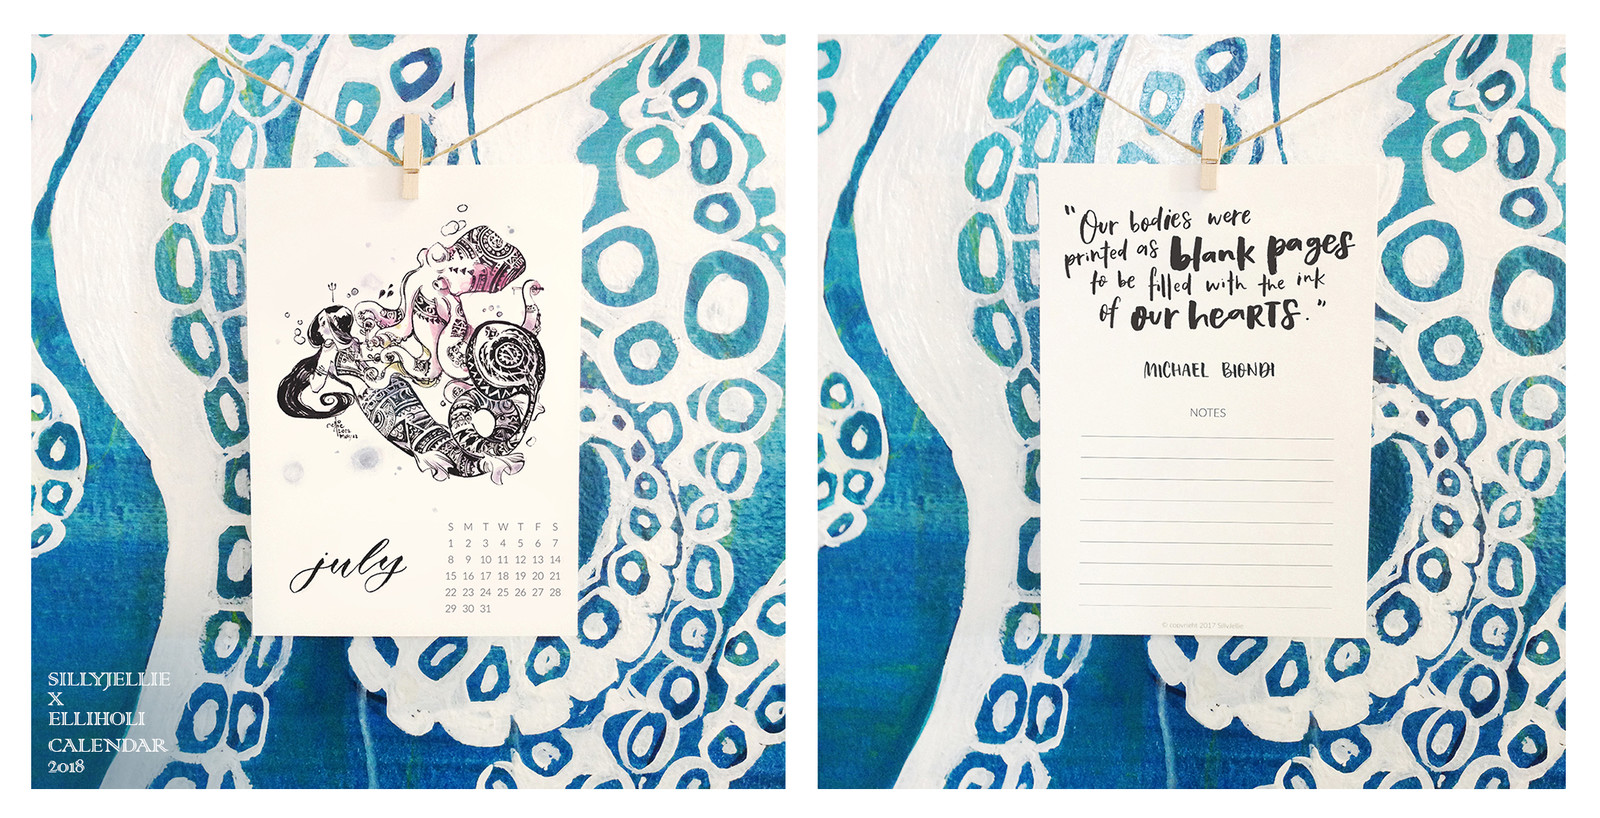 july
S M T W T F S
1 2 3 4 5 6 7
8 9 10 11 12 13 14
15 16 17 18 19 20 21
22 23 24 25 26 27 28
29 30 31
SILLYJELLIE
X
ELLIHOLI
CALENDAR
2018
"Our bodies were
printed as blank pages
to be filled with the ink
of our heARTS."
MICHAEL BIONDI
NOTES
© copyright 2017 Sillyjellie